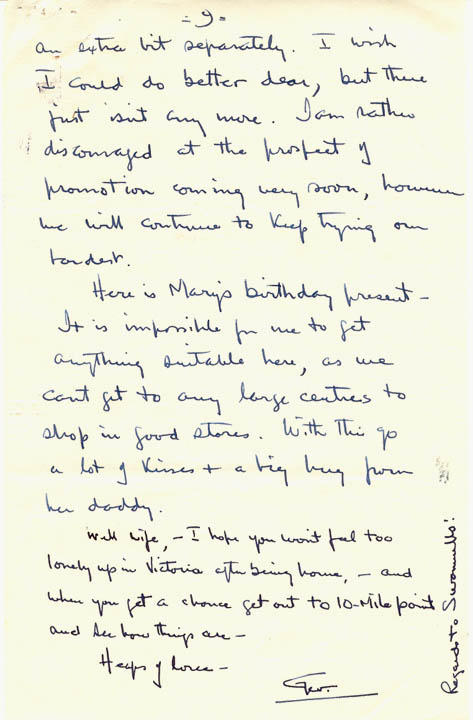 - 9 -
an extra bit separately. I wish
I could do better dear, but there
just isn't any more. I am rather
discouraged at the prospect of
promotion coming very soon, however
we will continue to keep trying our
hardest.
Here is Mary's birthday present -
It is impossible for me to get
anything suitable here, as we
can't get to any large centres to
shop in good stores. With this go
a lot of kisses + a big hug from
her daddy.
Well wife, - I hope you won't feel too
lonely up in Victoria after being home, - and
when you get a chance get out to 10-Mile point
and see how things are -
Heaps of love -
Geo.
Regards to